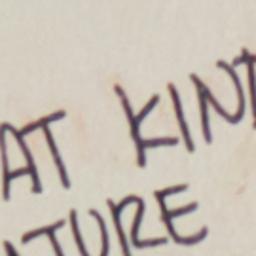 AT KIND
ATURE